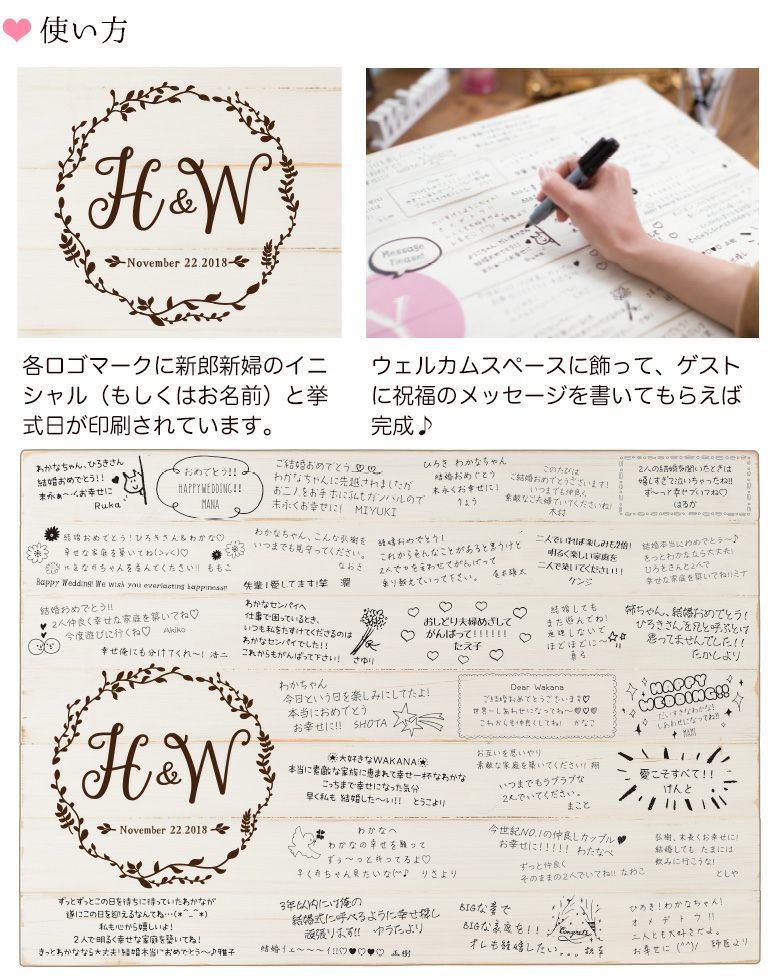 使い方
H&W
November 22.2018
Message Please!
各ロゴマークに新郎新婦のイニ
シャル（もしくはお名前）と挙
式日が印刷されています。
ウェルカムスペースに飾って、ゲスト
に祝福のメッセージを書いてもらえば
完成♪
わかなちゃん、ひろきさん
結婚おめでとう!!
末永ぁ〜くお幸せに
Ruka
おめでとう!!
HAPPYWEDDING!!
MANA
ご結婚おめでとう♡♡
わかなちゃんに先越されましたが
お二人をお手本に私もガンバルので
末永くお幸せに! MIYUKI
ひろき わかなちゃん
結婚おめでとう
末永くお幸せに!
りょう
このたびは
ご結婚おめでとうございます!
いつまでも仲良く
素敵なご夫婦でいてくださいね!
木村
2人の結婚を聞いたときは
嬉しすぎて泣いちゃったね!!
ず〜っと幸せでいてね♡
はるか
結婚おめでとう!ひろきさん&わかな♡
幸せな家庭を築いてね(>v<)♡
ももこ
Happy Wedding! We wish you everlasting happiness!!
わかなちゃん、こんな弘樹を
いつまでも見守ってください。
なおき
先輩!愛してます!笑
結婚おめでとう!
これから色んなことがあると思うけど
2人で力を合わせてがんばって
乗り越えていって下さい。
二人でいれば楽しみも2倍!
明るく楽しい家庭を
二人で築いてください!!
ケンジ
結婚本当におめでとう〜♪
きっとわかななら大丈夫!
ひろきさんと2人で
幸せな家庭を築いてね!!ミナ
結婚おめでとう!!
2人仲良く幸せな家庭を築いてね!
今度遊びに行くね♡ Akiko
幸せ俺にも分けてくれ〜! 浩二
わかなセンパイへ
仕事で困っているとき、
いつも私をたすけてくださるのは
わかなセンパイでした!!
これからもがんばって下さい! さゆり
おしどり夫婦めざして
がんばって!!!!!!
たえ子
結婚しても
また遊んでね!
無理しないで
ほどほどに〜
姉ちゃん、結婚おめでとう!
ひろきさんを兄と呼ぶとは
思ってませんでした!!
たかしより
わかちゃん
今日という日を楽しみにしてたよ!
本当におめでとう
お幸せに!! SHOTA
Dear Wakana
ご結婚おめでとうございます♡
世界一しあわせになってね〜♡♡♡
これからも仲良くしてね! かなこ
HAPPY
WEDDING!!
だいすきなわかな!
しあわせになってね!!
MAMI
H&W
November 22.2018
大好きなWAKANA
本当に素敵な家族に恵まれて幸せ一杯なわかな
こっちまで幸せになった気分
早く私も 結婚した〜い!! とうこより
お互いを思いやり
素敵な家庭を築いてください! 翔
いつまでもラブラブな
2人でいてください。
まこと
愛こそすべて!!
けんと
わかなへ
わかなの幸せを願って
ずぅ〜っと祈ってるよ♡
早く赤ちゃん見たいな(^^♪ りさより
今世紀NO.1の仲良しカップル♥
お幸せに!!!!! わたなべ
ずっと仲良く
そのままの2人でいてね!! なおこ
弘樹、末長くお幸せに!
結婚しても たまには
飲みに行こうな!
としや
ずっとずっとこの日を待ちに待っていたわかなが
遂にこの日を迎えるなんてね...(*^_^*)
私も心から嬉しいよ!
2人で明るく幸せな家庭を築いてね!
きっとわかななら大丈夫!結婚本当におめでとう〜♪ 雅子
3年以内に俺の
結婚式に呼べるように幸せ探し
頑張ります!! ゆうたより
結婚イェ〜〜〜イ!!♡♥♡♥ 正樹
BIGな愛で
BIGな家庭を!!
オレも結婚したい...
Congrats
ひろき!わかなちゃん!
オメデトウ!!
二人とも大好きだよ。
お幸せに (^^)/